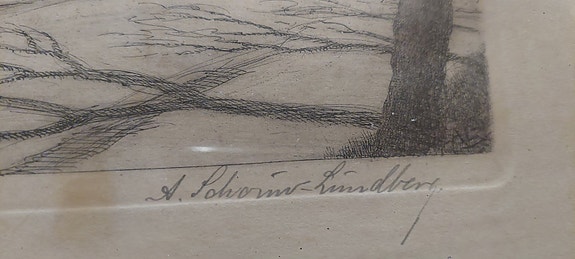 A. Schouw-Lundberg.